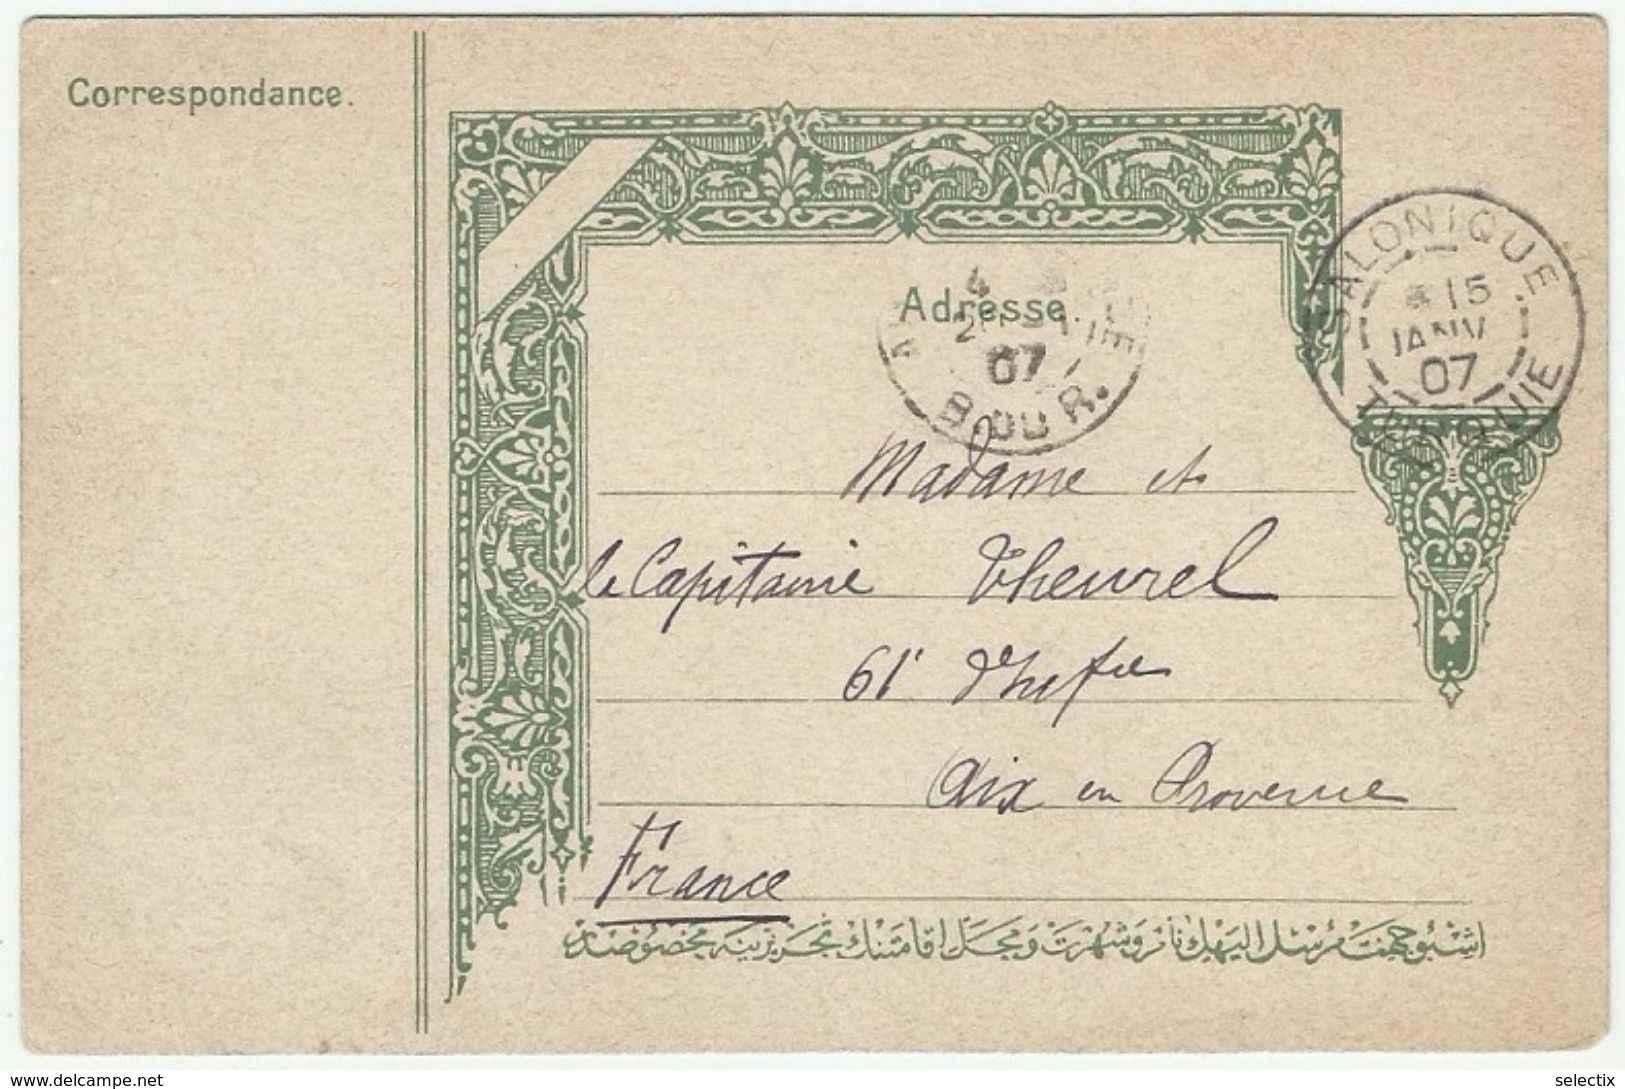 Correspondance.
SALONIQUE
15
JANV
07
TURQUIE
Adresse.
07
B. DU R.
Madame et
le Capitaine Theurel
61e d'Infie
Aix en Provence
France
اشبو جهت مرسل اليهك نام و شهرت و محل اقامتنك تحريرينه مخصوصدر
delcampe.net
selectix